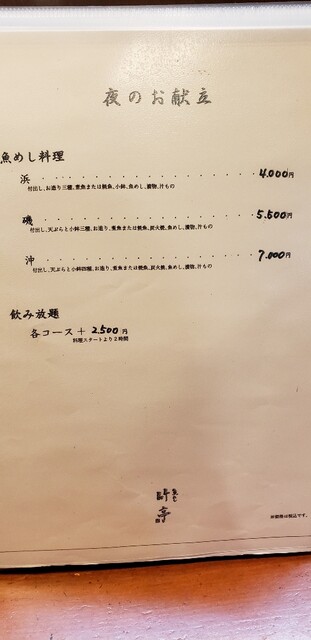 夜のお献立
魚めし料理
浜 4.000円
付出し、お造り三種、煮魚または焼魚、小鉢、魚めし、漬物、汁もの
磯 5.500円
付出し、天ぷらと小鉢三種、お造り、煮魚または焼魚、炭火焼、魚めし、漬物、汁もの
沖 7.000円
付出し、天ぷらと小鉢四種、お造り、煮魚または焼魚、炭火焼、魚めし、漬物、汁もの
飲み放題
各コース + 2.500円
料理スタートより2時間
亭